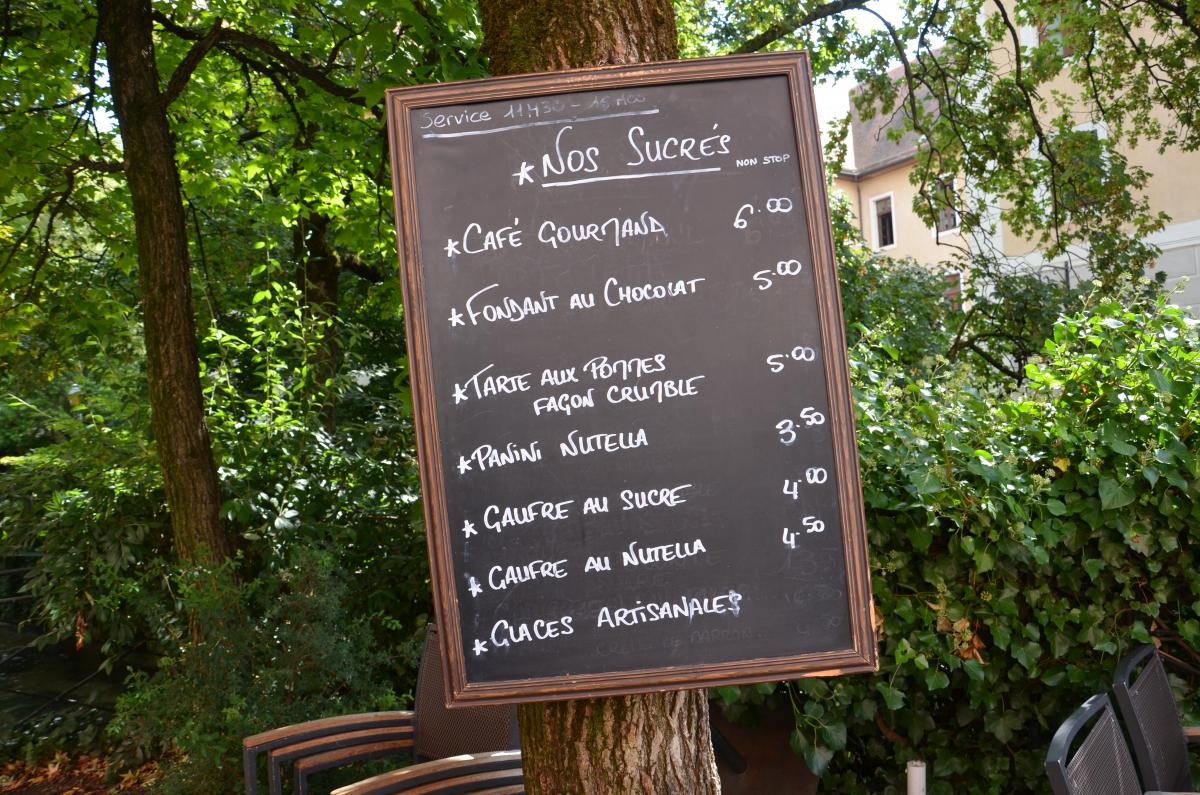 Service 11H30 - 15H00
*NOS SUCRÉS
NON STOP
*CAFÉ GOURMAND 6.00
*FONDANT AU CHOCOLAT 5.00
*TARTE AUX POMMES 5.00
FAÇON CRUMBLE
*PANINI NUTELLA 3.50
*GAUFRE AU SUCRE 4.00
*GAUFRE AU NUTELLA 4.50
*GLACES ARTISANALES